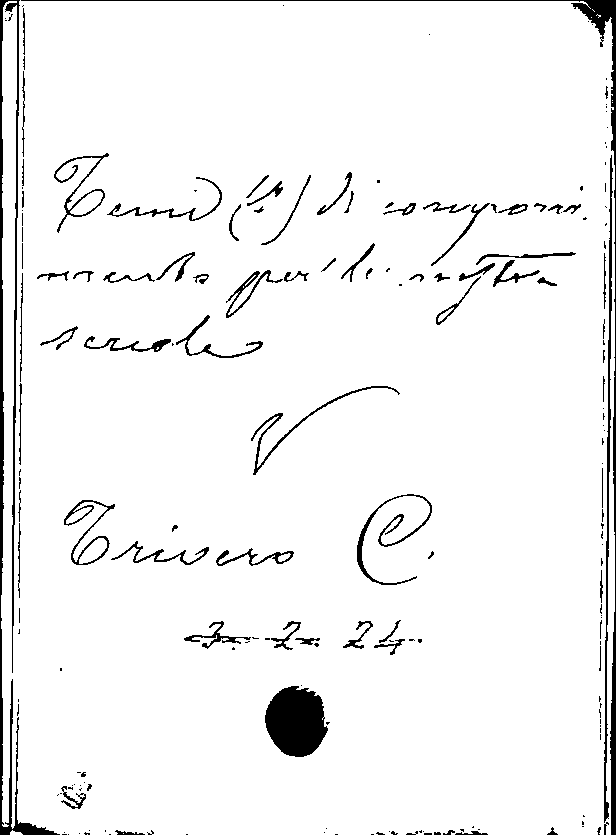 Temi (1º) di componi-
mento per le nostre
scuole
V
Trivero C.
3- 2- 24.